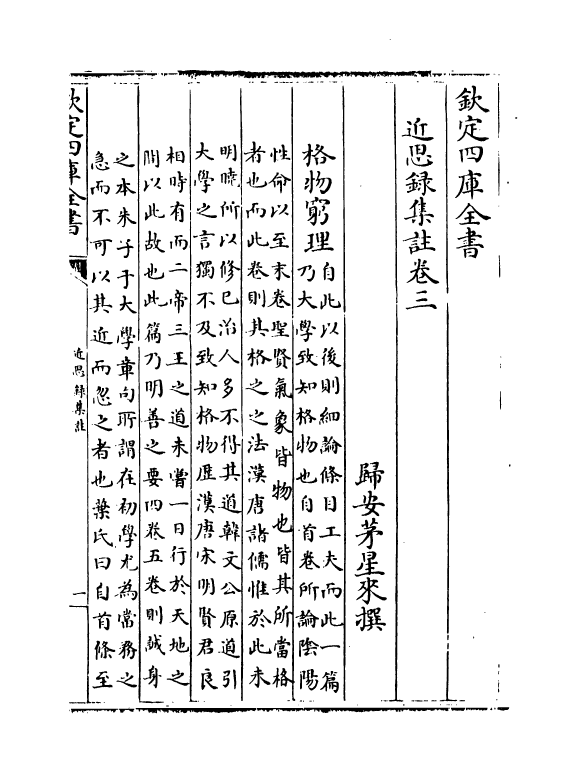 欽定四庫全書
近思録集註卷三
歸安茅星來撰
格物窮理
自此以後則細論條目工夫而此一篇
乃大學致知格物也自首卷所論陰陽
性命以至末卷聖賢氣象皆物也皆其所當格
者也而此卷則其格之之法漢唐諸儒惟於此未
明曉所以修已治人多不得其道韓文公原道引
大學之言獨不及致知格物歴漢唐宋明賢君良
相時有而二帝三王之道未嘗一日行於天地之
間以此故也此篇乃明善之要四卷五卷則誠身
之本朱子于大學章句所謂在初學尤為當務之
急而不可以其近而忽之者也葉氏曰自首條至
欽定四庫全書
近思録集註
一